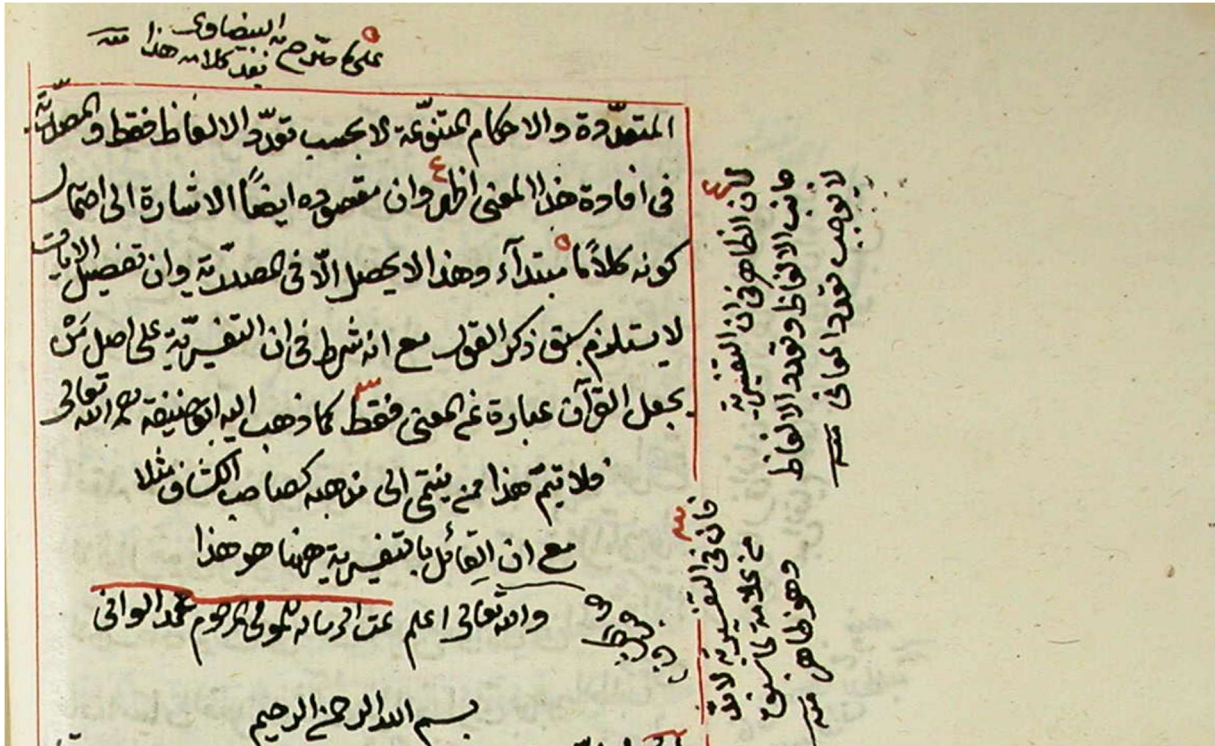 على ما صرح به البيضاوي
بعد كلامه هذا منه
المتعدّدة والاحكام المتنوّعة لا بحسب تعدّد الالفاظ فقط والمصدريّة
في افادة هذا المعنى اظهر٤ وان مقصوده ايضًا الاشارة الى احتمال
كونه كلامًا مبتدأ٥ وهذا لا يحصل الّا في المصدريّة وان تفصيل الايات
لا يستلزم سبق ذكر القول مع انه شرط في ان التفسيريّة على اصل من
يجعل القرآن عبارة عن المعنى فقط٣ كما ذهب اليه ابو حنيفة رحمه الله تعالى
فلا يتمّ هذا ممن ينتمى الى مذهبه كصاحب الكشاف مثلا
مع ان القائل بالتفسيرية ههنا هو هذا
والله تعالى اعلم تمت الرساله للمولى المرحوم محمد الوانى
بسم الله الرحمن الرحيم
٤ لان الظاهر في ان التفسيرية
جانب الالفاظ وتعدد الالفاظ
لا يوجب تعدد المعانى منه
٣ فان في التفسيرية لا بد
من علامة لما سبق
وهو ظاهر منه